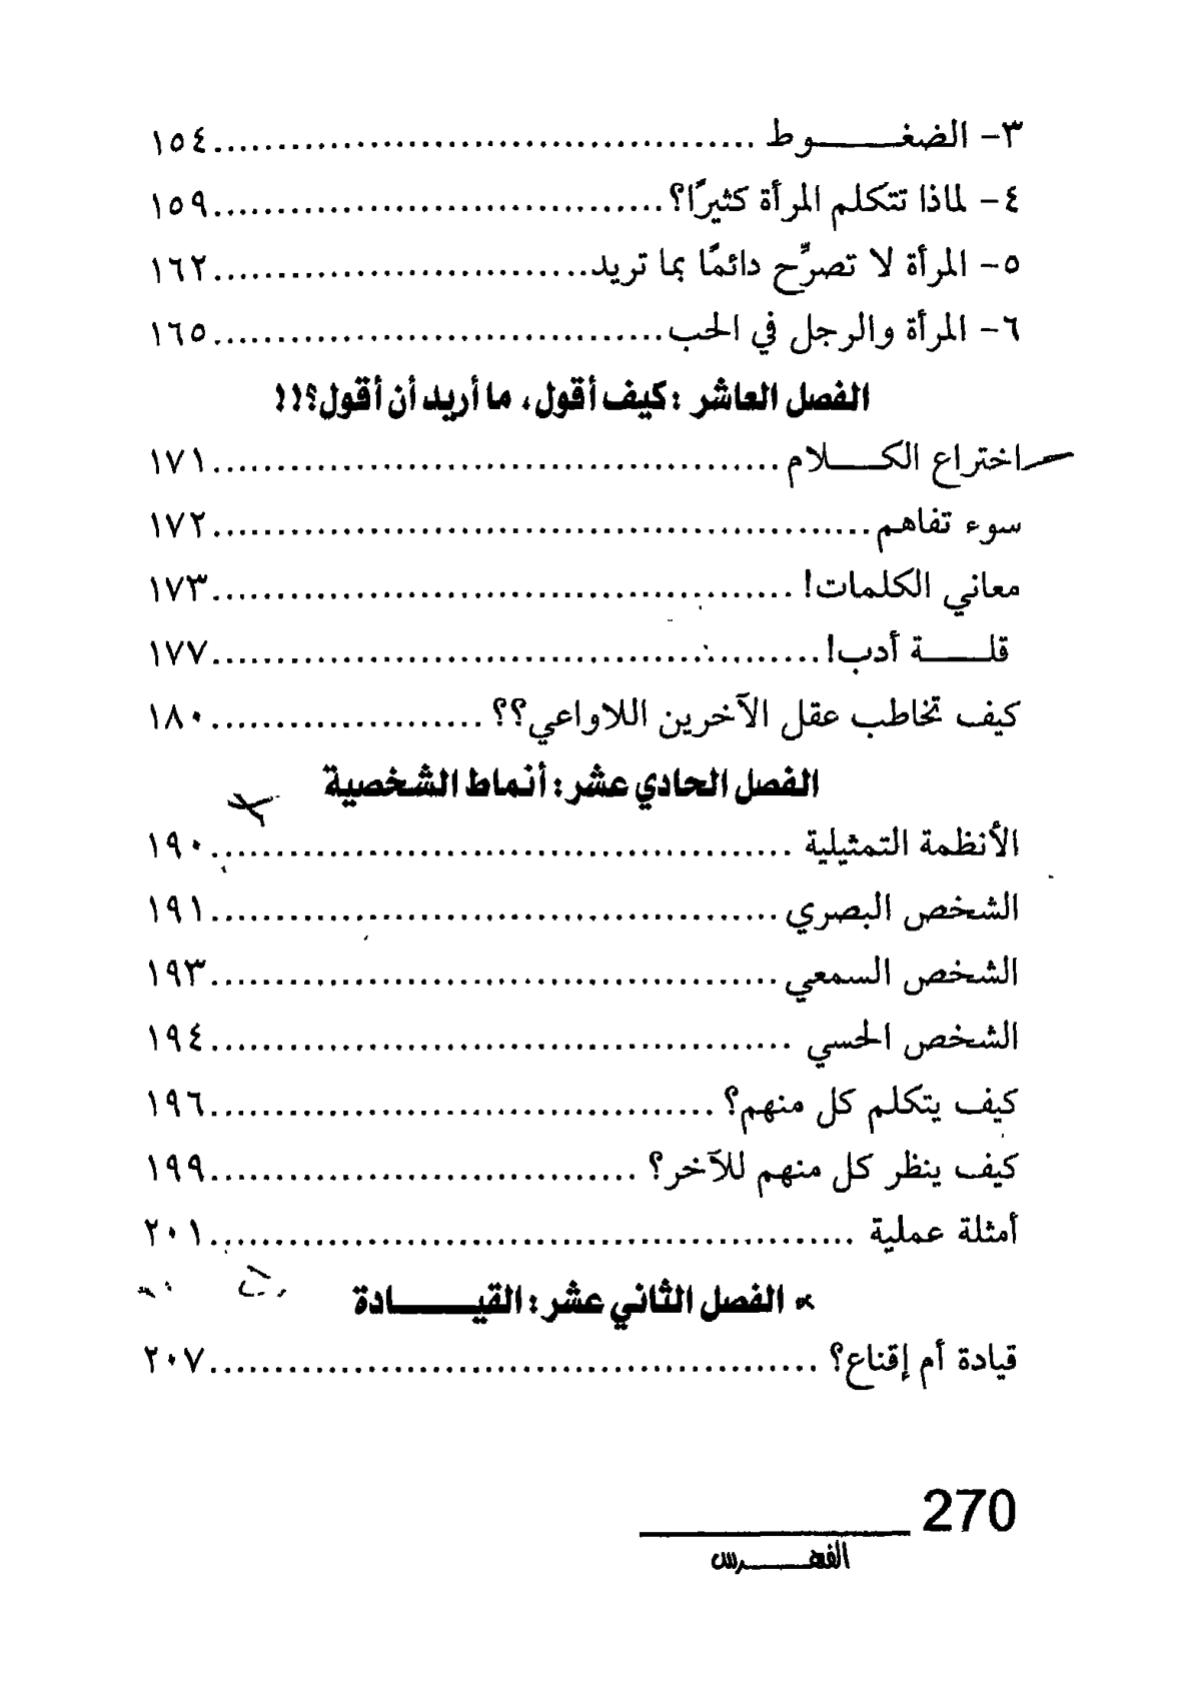 ٣- الضغـــــوط ..........................................١٥٤
٤- لماذا تتكلم المرأة كثيرًا؟...................................١٥٩
٥- المرأة لا تصرِّح دائمًا بما تريد.............................١٦٢
٦- المرأة والرجل في الحب...................................١٦٥
الفصل العاشر : كيف أقول، ما أريد أن أقول؟!!
اختراع الكـــلام............................................١٧١
سوء تفاهم..................................................١٧٢
معاني الكلمات! .............................................١٧٣
قلـــة أدب!...............................................١٧٧
كيف تخاطب عقل الآخرين اللاواعي؟؟ .....................١٨٠
الفصل الحادي عشر: أنماط الشخصية
الأنظمة التمثيلية .............................................١٩٠
الشخص البصري............................................١٩١
الشخص السمعي............................................١٩٣
الشخص الحسي .............................................١٩٤
كيف يتكلم كل منهم؟ .......................................١٩٦
كيف ينظر كل منهم للآخر؟ .................................١٩٩
أمثلة عملية ..................................................٢٠١
* الفصل الثاني عشر: القيـــــادة
قيادة أم إقناع؟ ...............................................٢٠٧
270
الفهـــرس